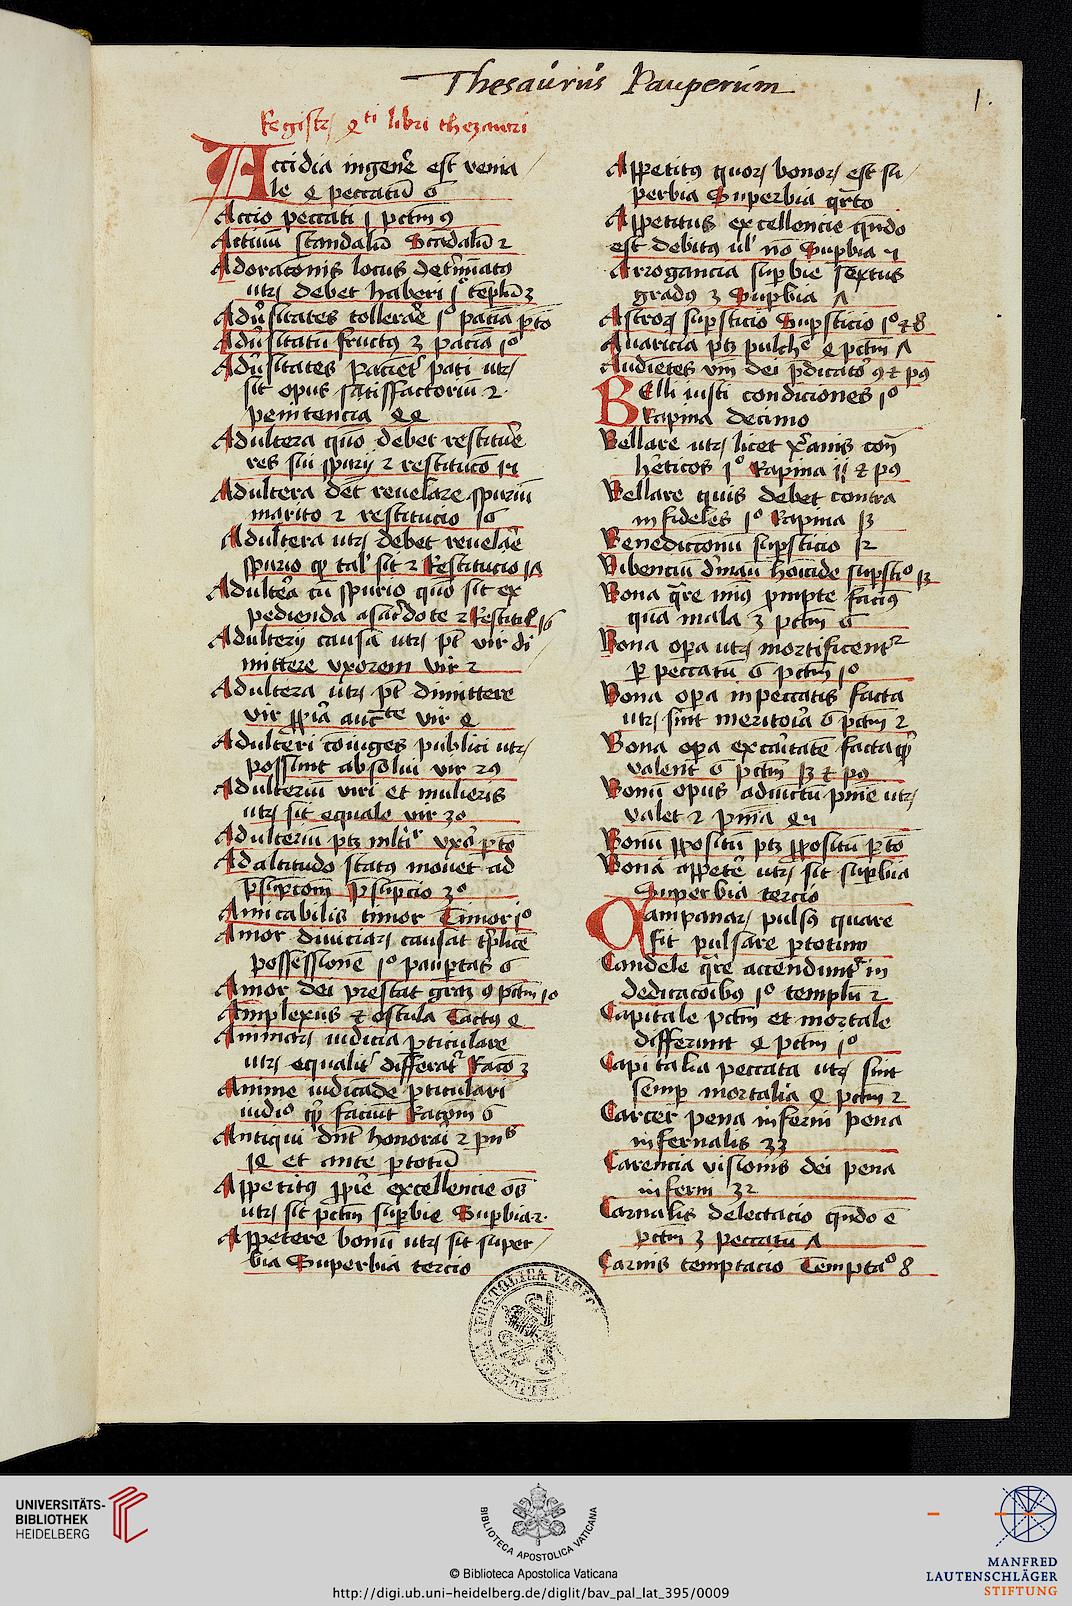 Thesaurus Pauperum
1.
Registrum 4ti libri thezauri
Accidia in genere est venia
le 4 peccatum 6
Accio peccati 1 pctm 9
Activum scandalum Scadalum 2
Adoracionis locus determinatus
utrum debet haberi 1o templum 3
Adversitates tollerare 1o patientia
Adversitatum fructus 3 patientia 1o
Adversitates pacienter pati utrum
sit opus satisfactorium 2
penitencia 44
Adultera quomodo debet restituere
res sui spurij 2 restitucio 14
Adultera debet revelare spurium
marito 2 restitucio 16
Adultera utrum debet revelare
spurio quod talis sit 2 Restitucio 17
Adultera cum spurio quomodo sit ex
pedienda a sacerdote 2 Restitucio 16
Adulterij causa utrum potest vir di
mittere uxorem vir 2
Adultera utrum potest dimittere
vir propria auctoritate vir 4
Adulteri coniuges publici utrum
possunt absolvi vir 29
Adulterium viri et mulieris
utrum sit equale vir 30
Adulterium
Ad altitudo status movet ad
presumpcionem Presumpcio 3o
Amicabilis timor Timor 1o
Amor diviciarum causat triplicem
possessionem 1o paupertas 6
Amor dei prestat graciam 9 pctm 10
Amplexus et oscula Tactus 4
Animarum iudicia particulare
utrum equaliter differatur Racio 3
Anime iudicande particulari
iudicio faciunt Racionem 6
Antiqui debent honorari 2
14 et ante per totum
Appetitus proprie excellencie omnis
utrum sit pctm superbie Superbia 2
Appetere bonum utrum sit super
bia Superbia tercio
Appetitus quorum bonorum est su
perbia Superbia quarto
Appetitus excellencie quando
est debitus vel non Superbia
Arrogancia superbie sextus
gradus 3 Superbia 7
Astrorum supersticio Supersticio 1o et 8
Avaricia patet pulchre 4 pctm 7
Audientes verbum dei predicatorum
Belli iusti condiciones 1o
Rapina decimo
Bellare utrum licet christianis contra
hereticos 1o Rapina 11
Bellare quis debet contra
infideles 1o Rapina 13
Benediccionum supersticio 12
Bibencium supersticio 13
Bona quare minus prompte facimus
quam mala 3 pctm 6
Bona opera utrum mortificentur
per peccatum 6 pctm 1o
Bona opera in peccatis facta
utrum sint meritoria 6 pctm 2
Bona opera extra caritatem facta
valent 6 pctm 13
Bonum opus utrum
valet 2
Bonum propositum patet propositum per totum
Bona appetere utrum sit superbia
Superbia tercio
Campanarum pulsus quare
fit pulsare per totum
Candele quare accenduntur in
dedicacionibus 1o templum 2
Capitale pctm et mortale
differunt 4 pctm 1o
Capitalia peccata utrum sint
semper mortalia 4 pctm 2
Carcer pena inferni pena
infernalis 33
Carencia visionis dei pena
inferni 32
Carnalis delectacio quando est
pctm 3 peccatum 7
Carnis temptacio Temptacio 8
UNIVERSITÄTS-
BIBLIOTHEK
HEIDELBERG
BIBLIOTECA APOSTOLICA VATICANA
© Biblioteca Apostolica Vaticana
http://digi.ub.uni-heidelberg.de/diglit/bav_pal_lat_395/0009
MANFRED
LAUTENSCHLÄGER
STIFTUNG